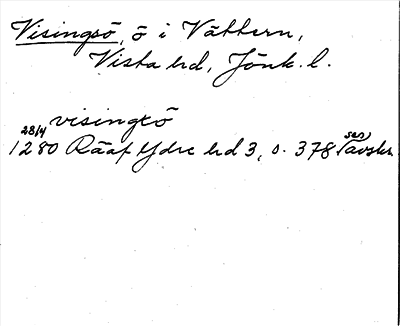 Visingsö, ö i Vättern,
Vista hd, Jönk. l.
visingxö
28/4 1280 Rääf Ydre hd 3, s. 378 sen avskr.